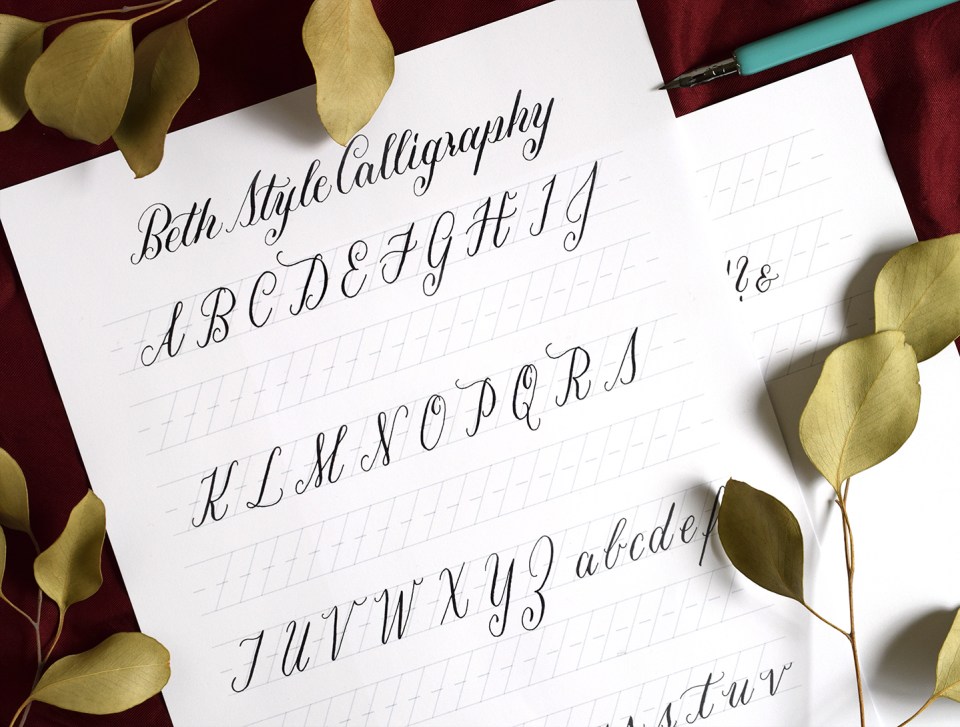 Beth Style Calligraphy
A B C D E F G H I J
K L M N O P Q R S
T U V W X Y Z a b c d e f
s t u v
! ? &